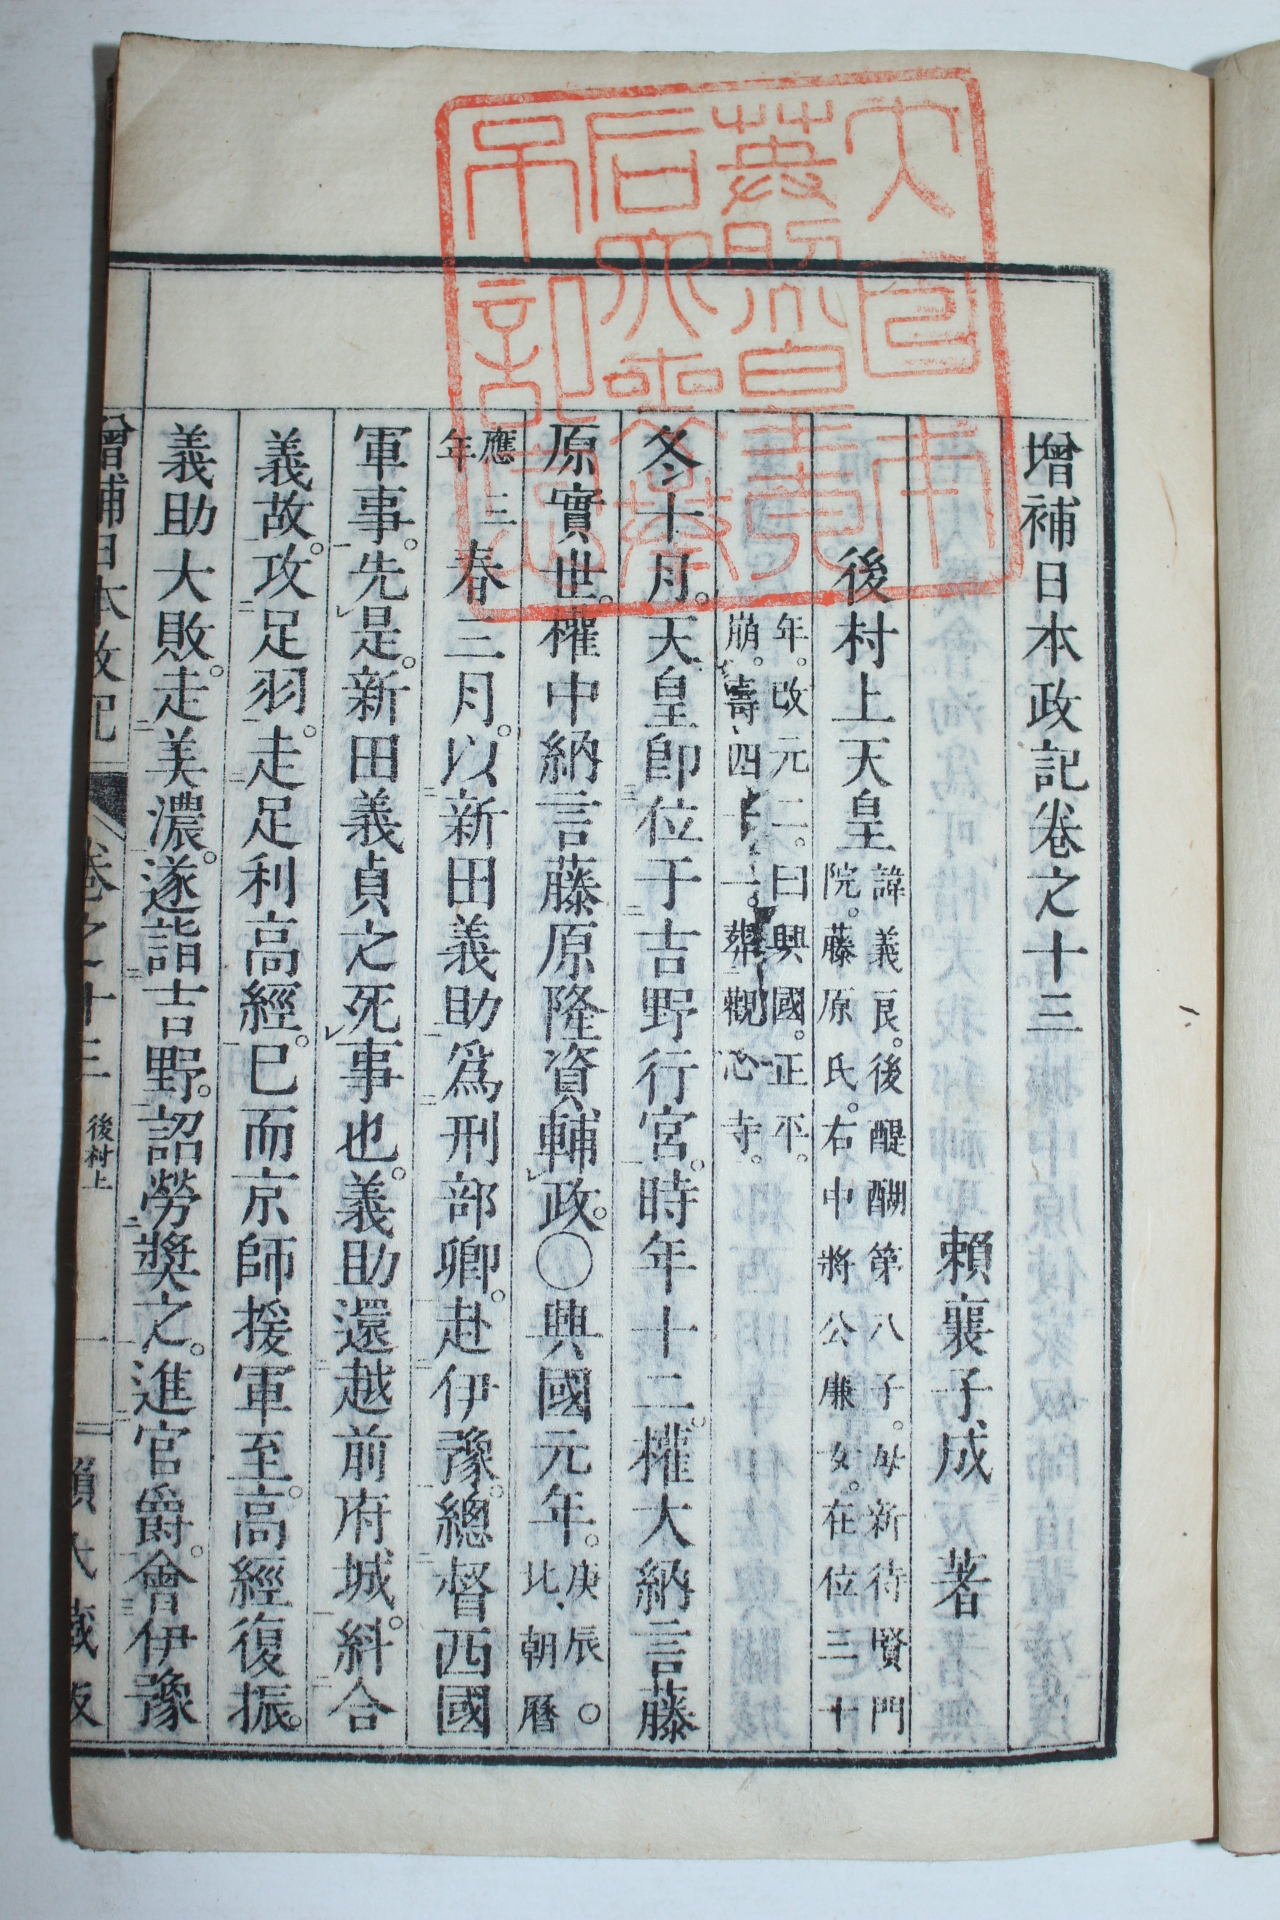 增補日本政記卷之十三
賴襄子成 著
後村上天皇 諱義良。後醍醐第八子。母新待賢門
院。藤原氏。右中將公廉女。在位三十
年。改元二。曰興國。正平。
崩。壽四十一。葬觀心寺。
冬十月。天皇卽位于吉野行宮。時年十二。權大納言藤
原實世。權中納言藤原隆資輔政。○興國元年。庚辰。○
比朝曆
應三
年 春三月。以新田義助爲刑部卿。赴伊豫。總督西國
軍事。先是。新田義貞之死事也。義助還越前府城。糾合
義故。攻足羽。走足利高經。已而京師援軍至。高經復振。
義助大敗。走美濃。遂詣吉野。詔勞獎之。進官爵。會伊豫
增補日本政記 卷之十三 後村上 一 賴氏藏版